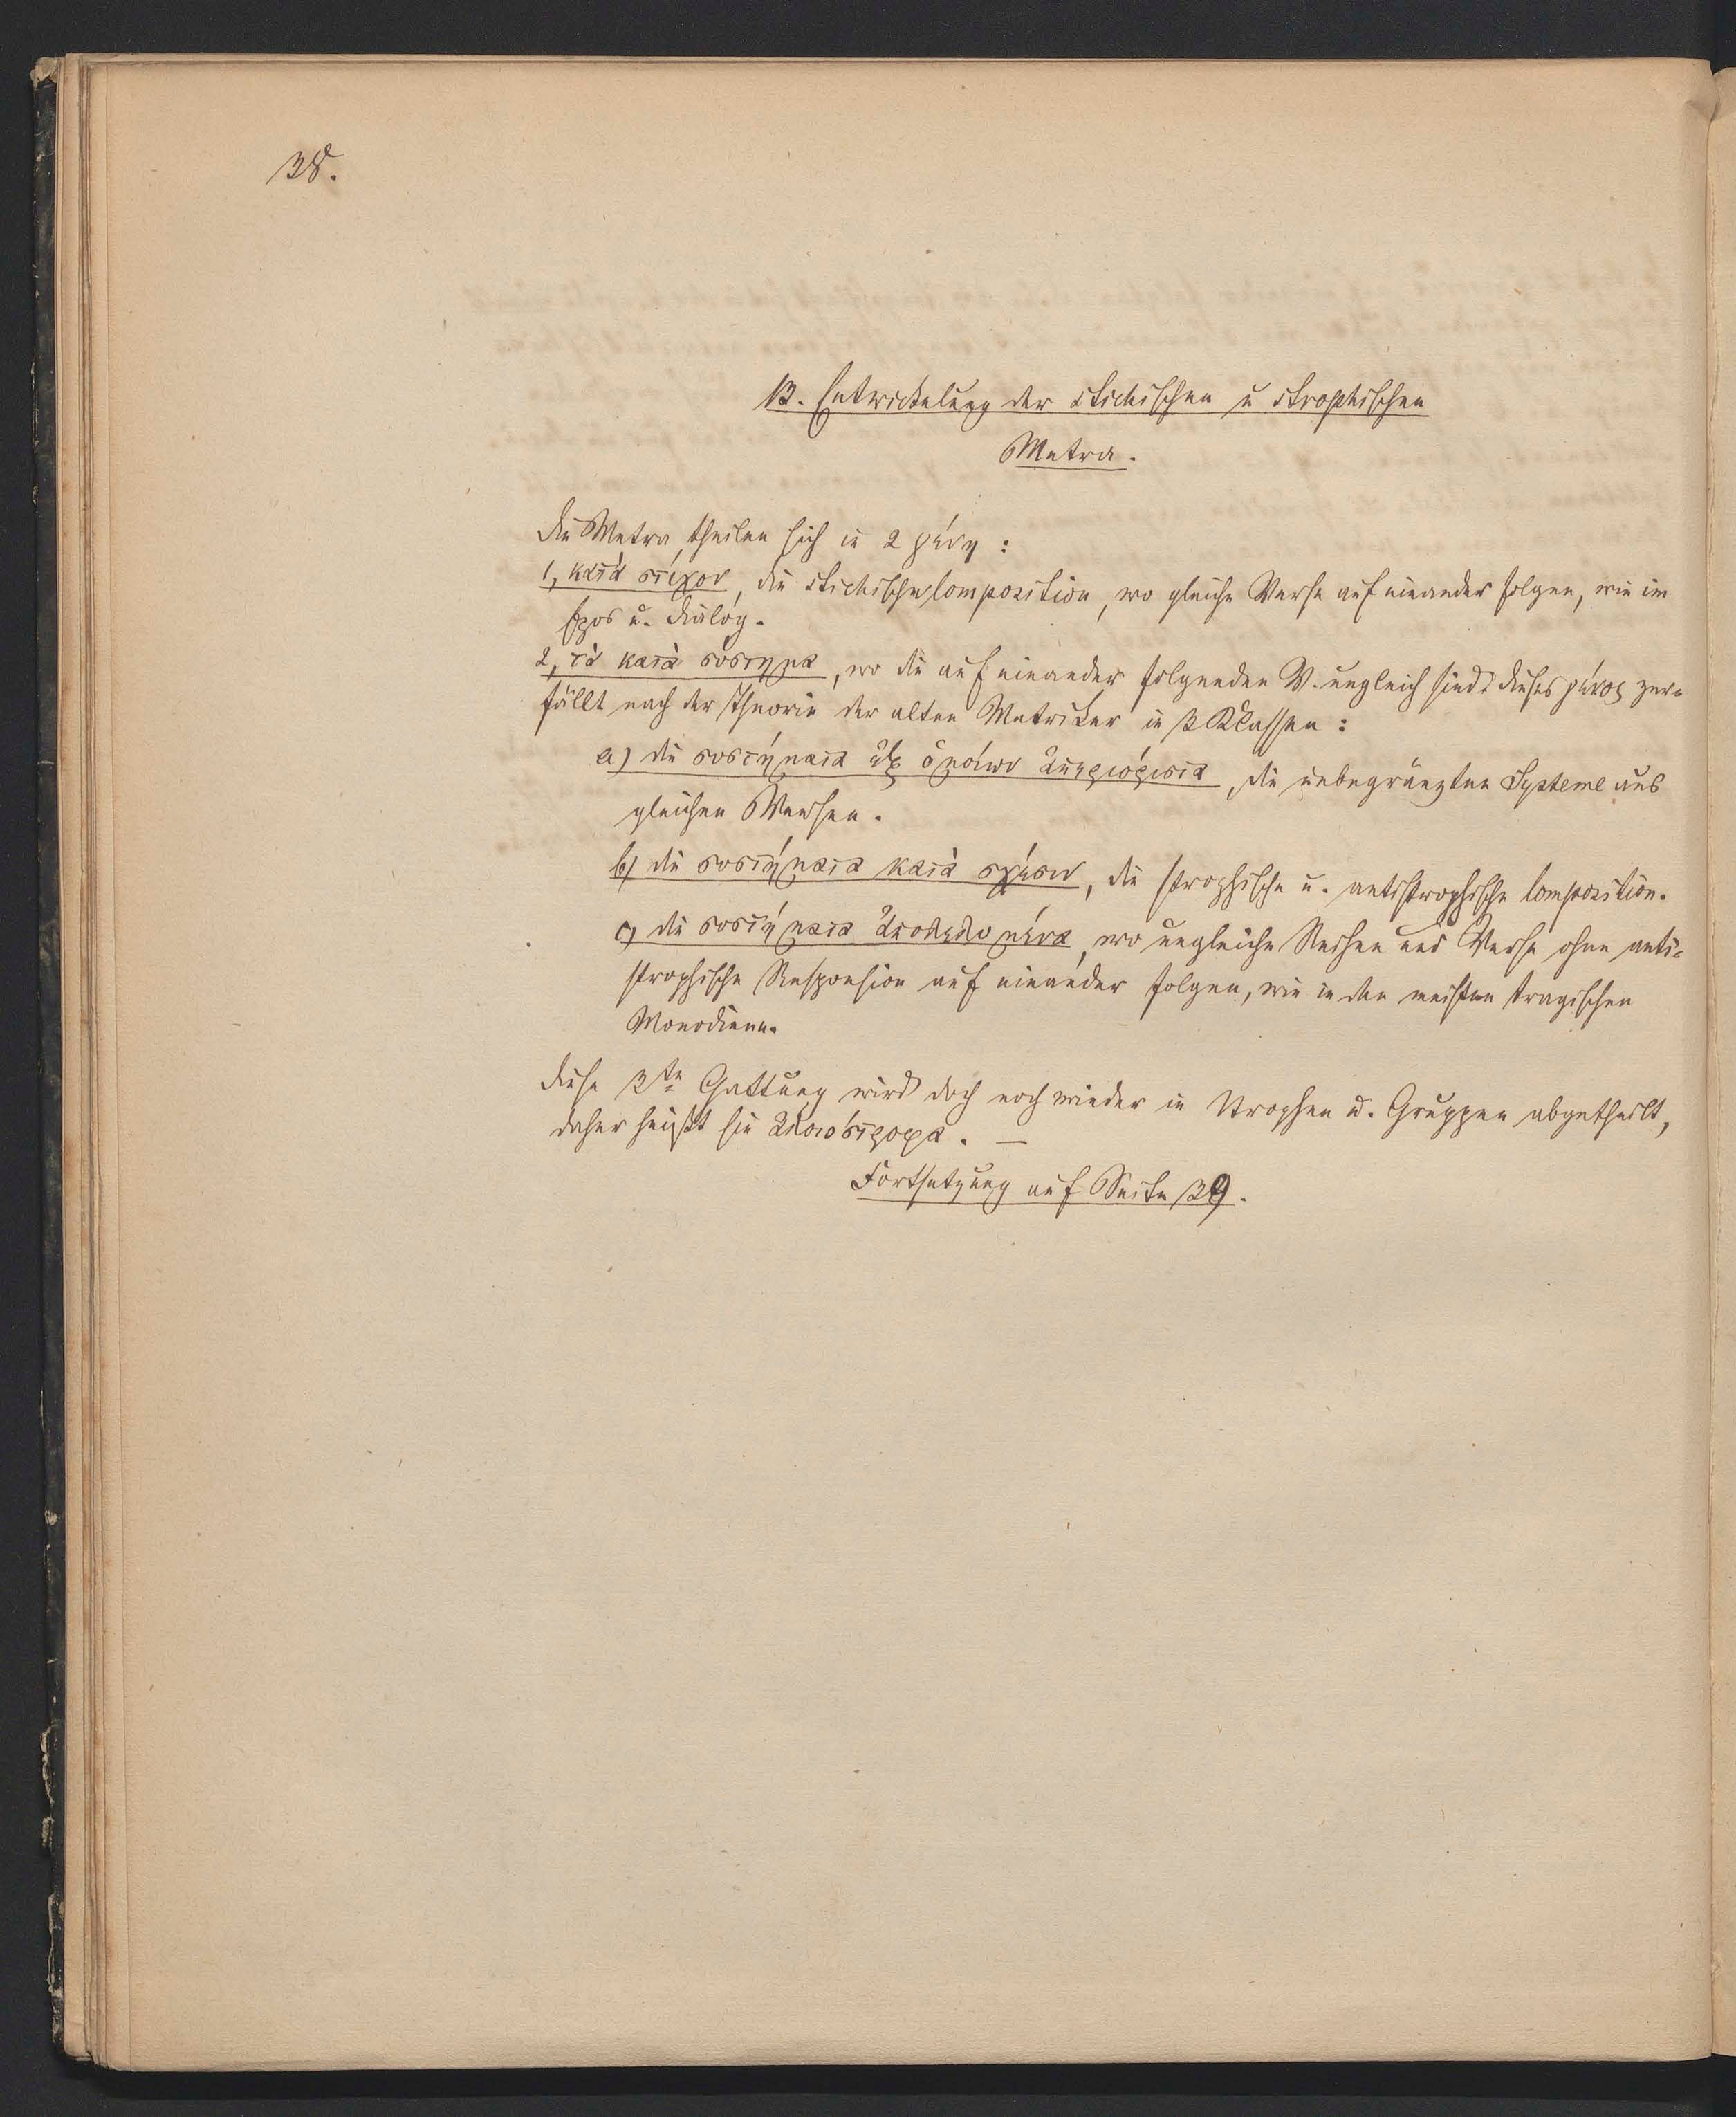 38.
B. Entwickelung der stichischen u strophischen
Metra.
Die Metra, theilen sich in 2 γένη:
1, κατὰ στίχον, die stichische Composition, wo gleiche Verse auf einander folgen, wie im
Epos u. Dialog.
2, τὰ κατὰ σύστημα, wo die auf einander folgenden V. ungleich sind. dieses γένος zer-
fällt nach der Theorie der alten Metriker in 3 Klassen:
a) die συστήματα ἐξ ὁμοίων ἀπεριόριστα, die unbegränzten Systeme aus
gleichen Versen.
b) die συστήματα κατὰ σχέσιν, die strophische u. antistrophische Composition.
c) die συστήματα ἀπολελυμένα, wo ungleiche Reihen und Verse ohne anti-
strophische Responsion auf einander folgen, wie in den meisten tragischen
Monodieen.
diese 3te Gattung wird doch noch wieder in Strophen u. Gruppen abgetheilt,
daher heißt sie ἀλοιόστροφα. —
Fortsetzung auf Seite 39.